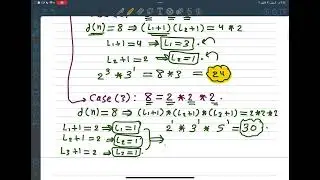 d(n) = 8 ⇒ (L₁+1)(L₂+1) = 4 * 2
L₁+1 = 4 ⇒ L₁ = 3.
L₂+1 = 2 ⇒ L₂ = 1.
2³ * 3¹ = 8 * 3 = 24
→ Case (3): 8 = 2 * 2 * 2.
d(n) = 8 ⇒ (L₁+1) * (L₂+1) * (L₃+1) = 2 * 2 * 2
L₁+1 = 2 ⇒ L₁ = 1
L₂+1 = 2 ⇒ L₂ = 1 ⇒ 2¹ * 3¹ * 5¹ = 30.
L₃+1 = 2 ⇒ L₃ = 1.